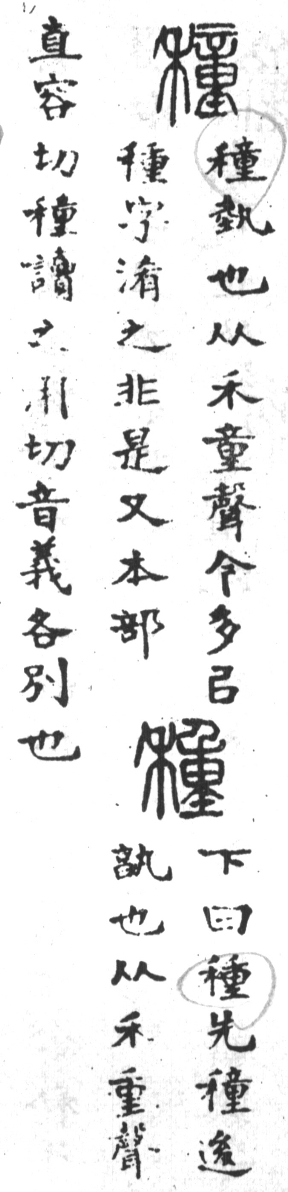 穜
穜埶也从禾童聲今多㠯
種字淆之非是又本部
種
下曰種先穜後
孰也从禾重聲
直容切穜讀之用切音義各別也